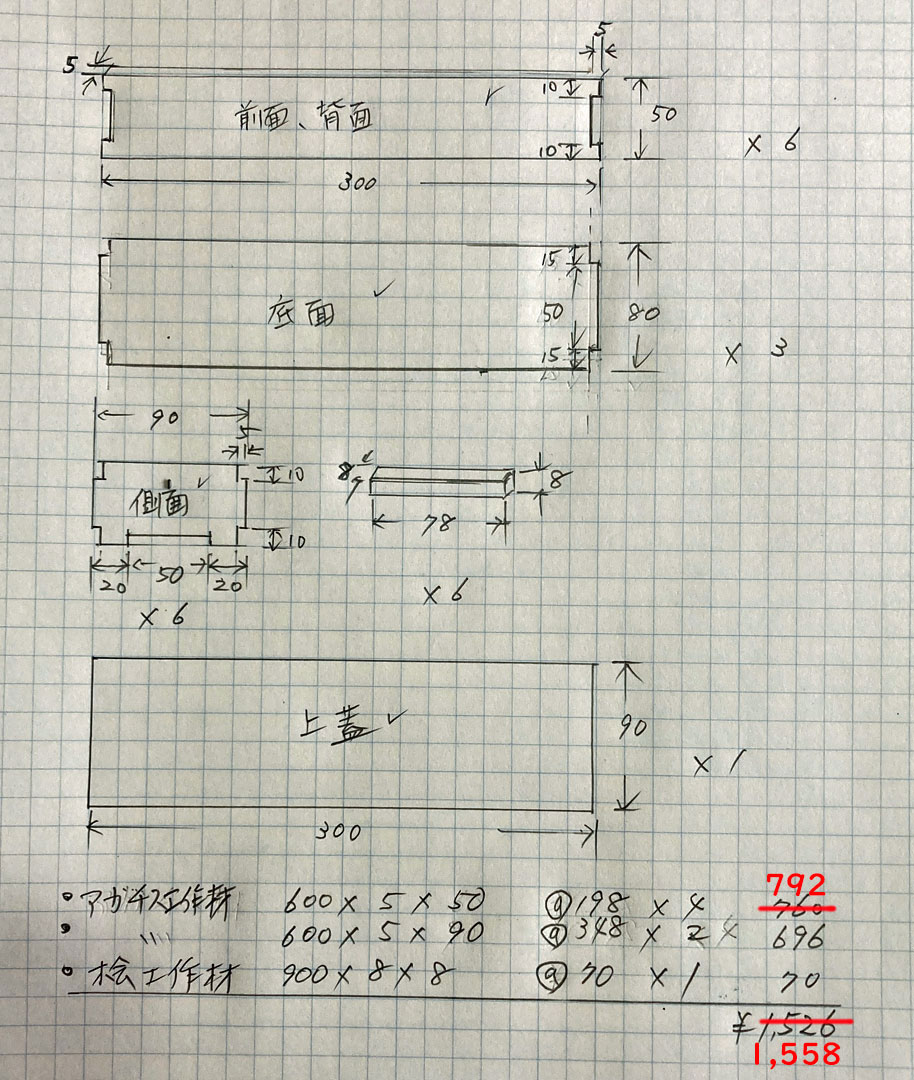 5
5
前面、背面
10
50
10
× 6
300
底面
15
50
15
80
× 3
90
5
側面
10
10
20
50
20
× 6
8
8
78
× 6
上蓋
90
× 1
300
・アガチス工作材 600 × 5 × 50 @198 × 4 792 760
・ 〃 600 × 5 × 90 @348 × 2 696
・桧工作材 900 × 8 × 8 @70 × 1 70
¥1,526
1,558